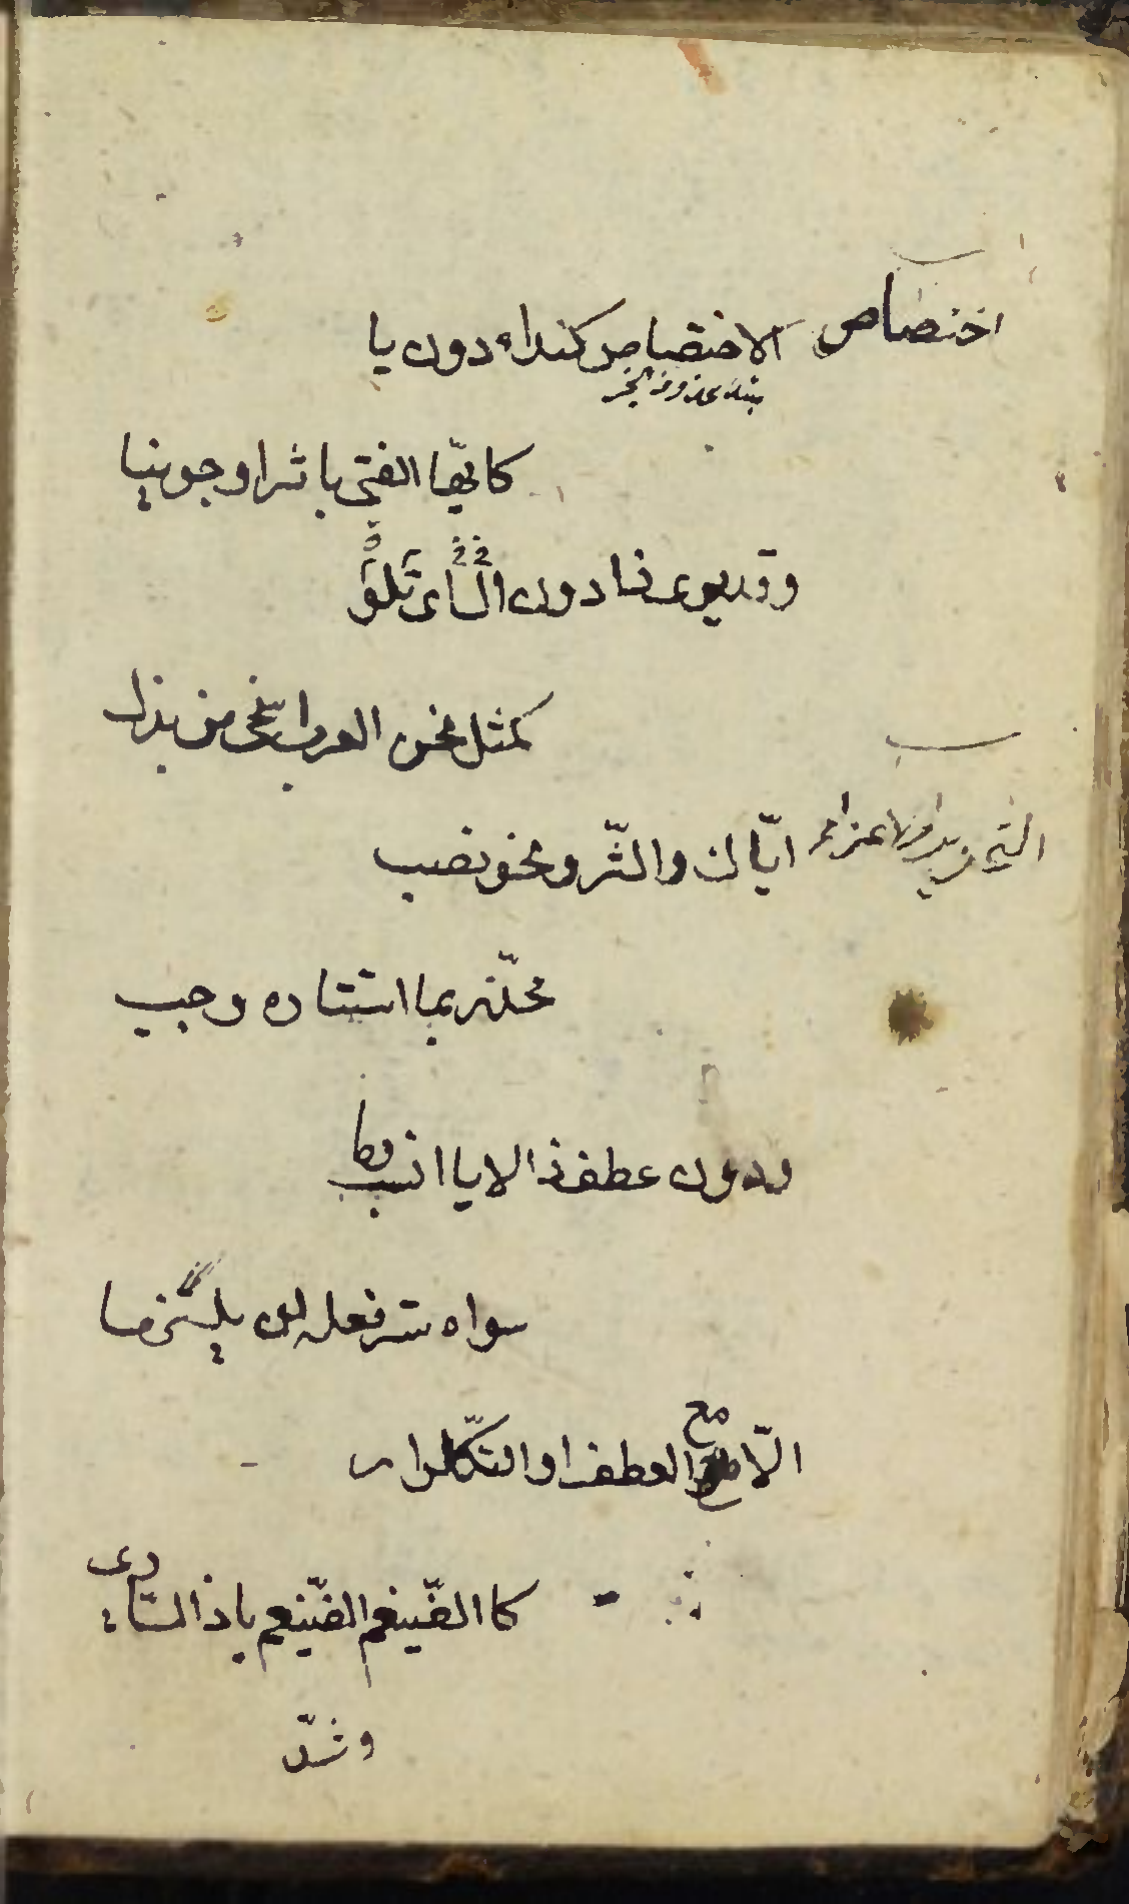 اختصاص
الاختصاص كنداء دون يا
كايّها الفتى باثر ارجونيا
وقد يرى ذا دون اىّ تلو
كمثل نحن العرب اسخى من بذل
التحذير والاغراء
ايّاك والشّر ونحوه نصب
محذّر بما استتاره وجب
ودون عطف ذا لايا انسب وما
سواه ستر فعله لن يلزما
الّا مع العطف او التّكرار
كالضّيغم الضّيغم يا ذا السّارى
وشذّ